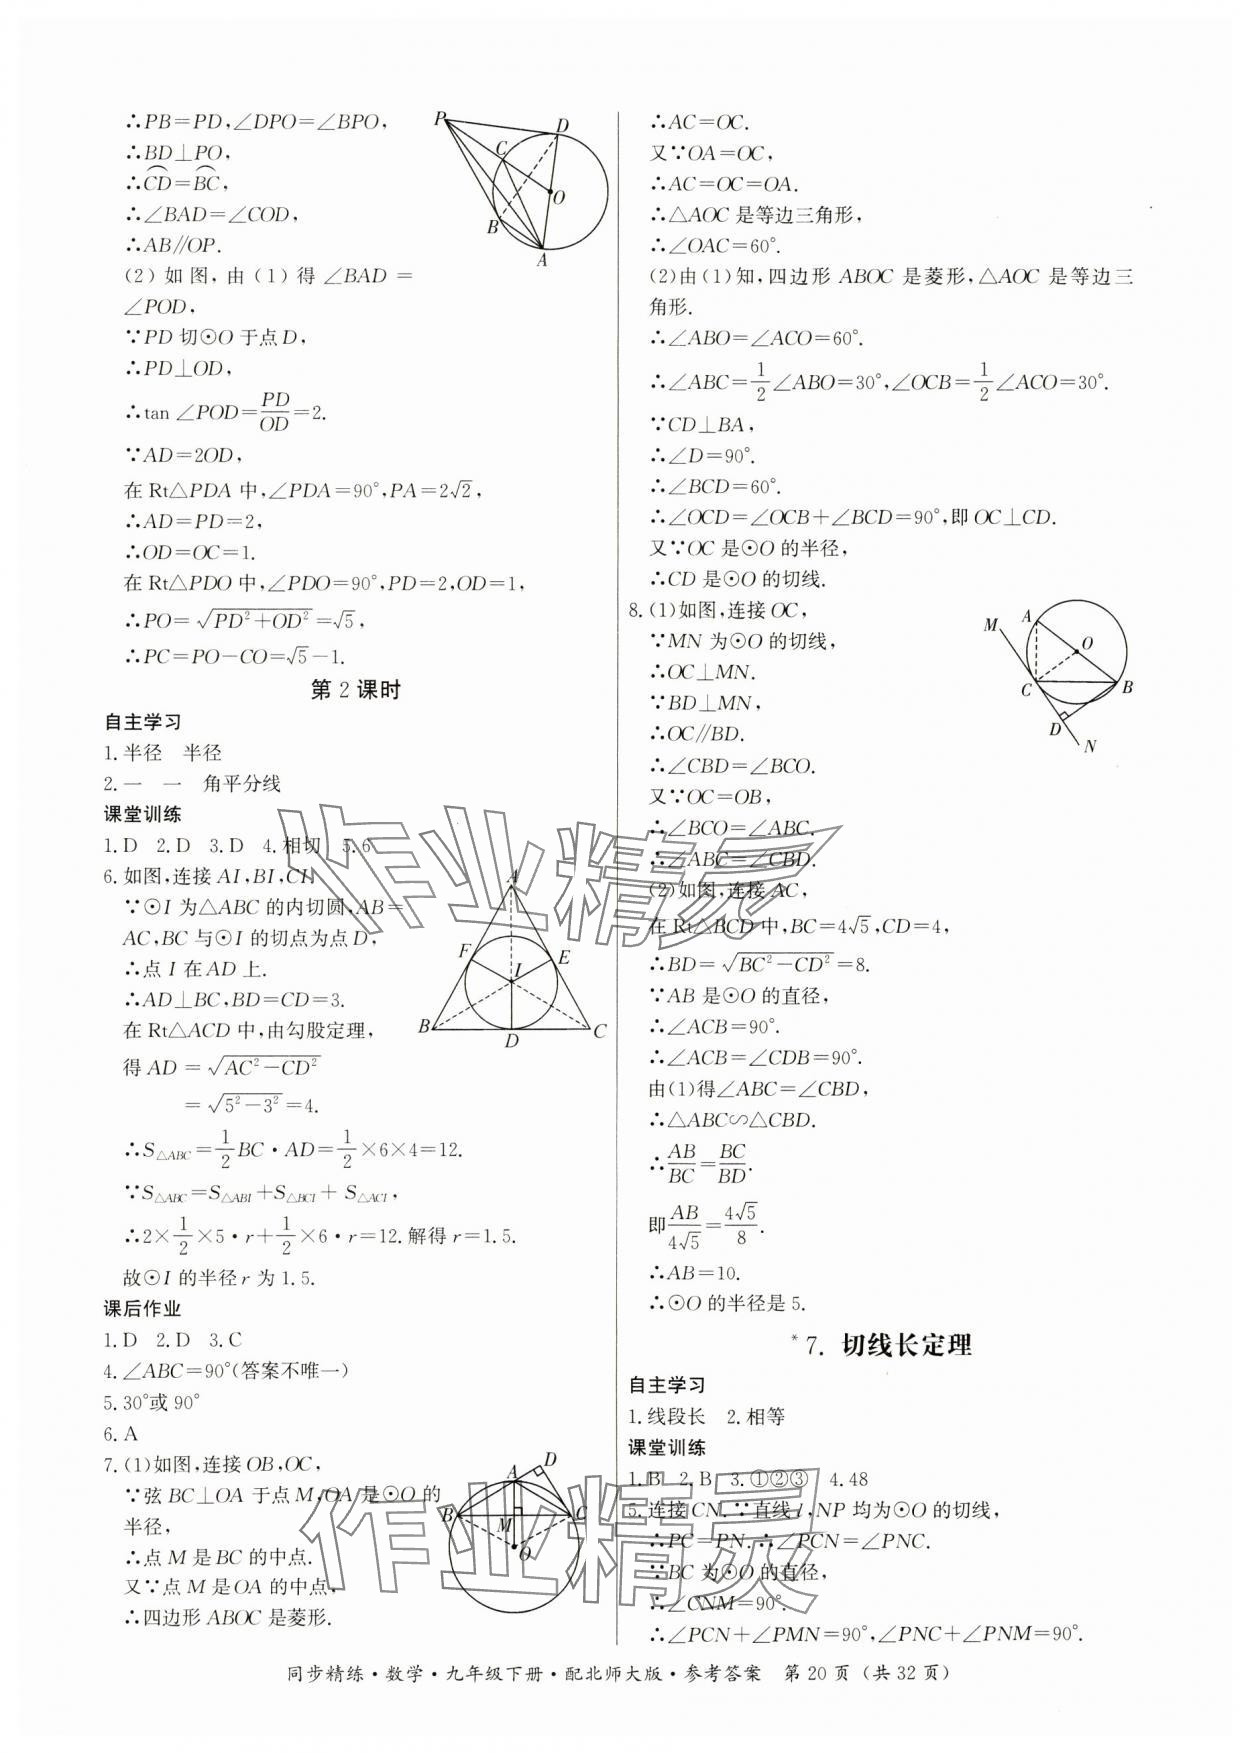 ∴PB=PD,∠DPO=∠BPO,
∴BD⊥PO,
∴CD=BC,
∴∠BAD=∠COD,
∴AB∥OP.
(2)如图,由(1)得∠BAD=
∠POD,
∵PD切⊙O于点D,
∴PD⊥OD,
∴tan∠POD=PD/OD=2.
∵AD=2OD,
在Rt△PDA中,∠PDA=90°,PA=2√2,
∴AD=PD=2,
∴OD=OC=1.
在Rt△PDO中,∠PDO=90°,PD=2,OD=1,
∴PO=√(PD²+OD²)=√5,
∴PC=PO−CO=√5−1.
P D C O B A
第2课时
自主学习
1.半径 半径
2.一 一 角平分线
课堂训练
1.D 2.D 3.D 4.相切 5.6
6.如图,连接AI,BI,CI.
∵⊙I为△ABC的内切圆,AB=
AC,BC与⊙I的切点为点D,
∴点I在AD上.
∴AD⊥BC,BD=CD=3.
在Rt△ACD中,由勾股定理,
得AD=√(AC²−CD²)
=√(5²−3²)=4.
∴S△ABC=1/2BC·AD=1/2×6×4=12.
∵S△ABC=S△ABI+S△BCI+S△ACI,
∴2×1/2×5·r+1/2×6·r=12.解得r=1.5.
故⊙I的半径r为1.5.
A F I E B D C
课后作业
1.D 2.D 3.C
4.∠ABC=90°(答案不唯一)
5.30°或90°
6.A
7.(1)如图,连接OB,OC,
∵弦BC⊥OA于点M,OA是⊙O的
半径,
∴点M是BC的中点.
又∵点M是OA的中点,
∴四边形ABOC是菱形.
A D B M C O
∴AC=OC.
又∵OA=OC,
∴AC=OC=OA.
∴△AOC是等边三角形,
∴∠OAC=60°.
(2)由(1)知,四边形ABOC是菱形,△AOC是等边三
角形.
∴∠ABO=∠ACO=60°.
∴∠ABC=1/2∠ABO=30°,∠OCB=1/2∠ACO=30°.
∵CD⊥BA,
∴∠D=90°.
∴∠BCD=60°.
∴∠OCD=∠OCB+∠BCD=90°,即OC⊥CD.
又∵OC是⊙O的半径,
∴CD是⊙O的切线.
8.(1)如图,连接OC,
∵MN为⊙O的切线,
∴OC⊥MN.
∵BD⊥MN,
∴OC∥BD.
∴∠CBD=∠BCO.
又∵OC=OB,
∴∠BCO=∠ABC,
∴∠ABC=∠CBD.
(2)如图,连接AC,
在Rt△BCD中,BC=4√5,CD=4,
∴BD=√(BC²−CD²)=8.
∵AB是⊙O的直径,
∴∠ACB=90°.
∴∠ACB=∠CDB=90°.
由(1)得∠ABC=∠CBD,
∴△ABC∽△CBD.
∴AB/BC=BC/BD.
即AB/4√5=4√5/8.
∴AB=10.
∴⊙O的半径是5.
M A O C B D N
*7. 切线长定理
自主学习
1.线段长 2.相等
课堂训练
1.B 2.B 3.①②③ 4.48
5.连接CN.∵直线l,NP均为⊙O的切线,
∴PC=PN.∴∠PCN=∠PNC.
∵BC为⊙O的直径,
∴∠CNM=90°.
∴∠PCN+∠PMN=90°,∠PNC+∠PNM=90°.
同步精练·数学·九年级下册·配北师大版·参考答案 第20页(共32页)
作业精灵
作业精灵